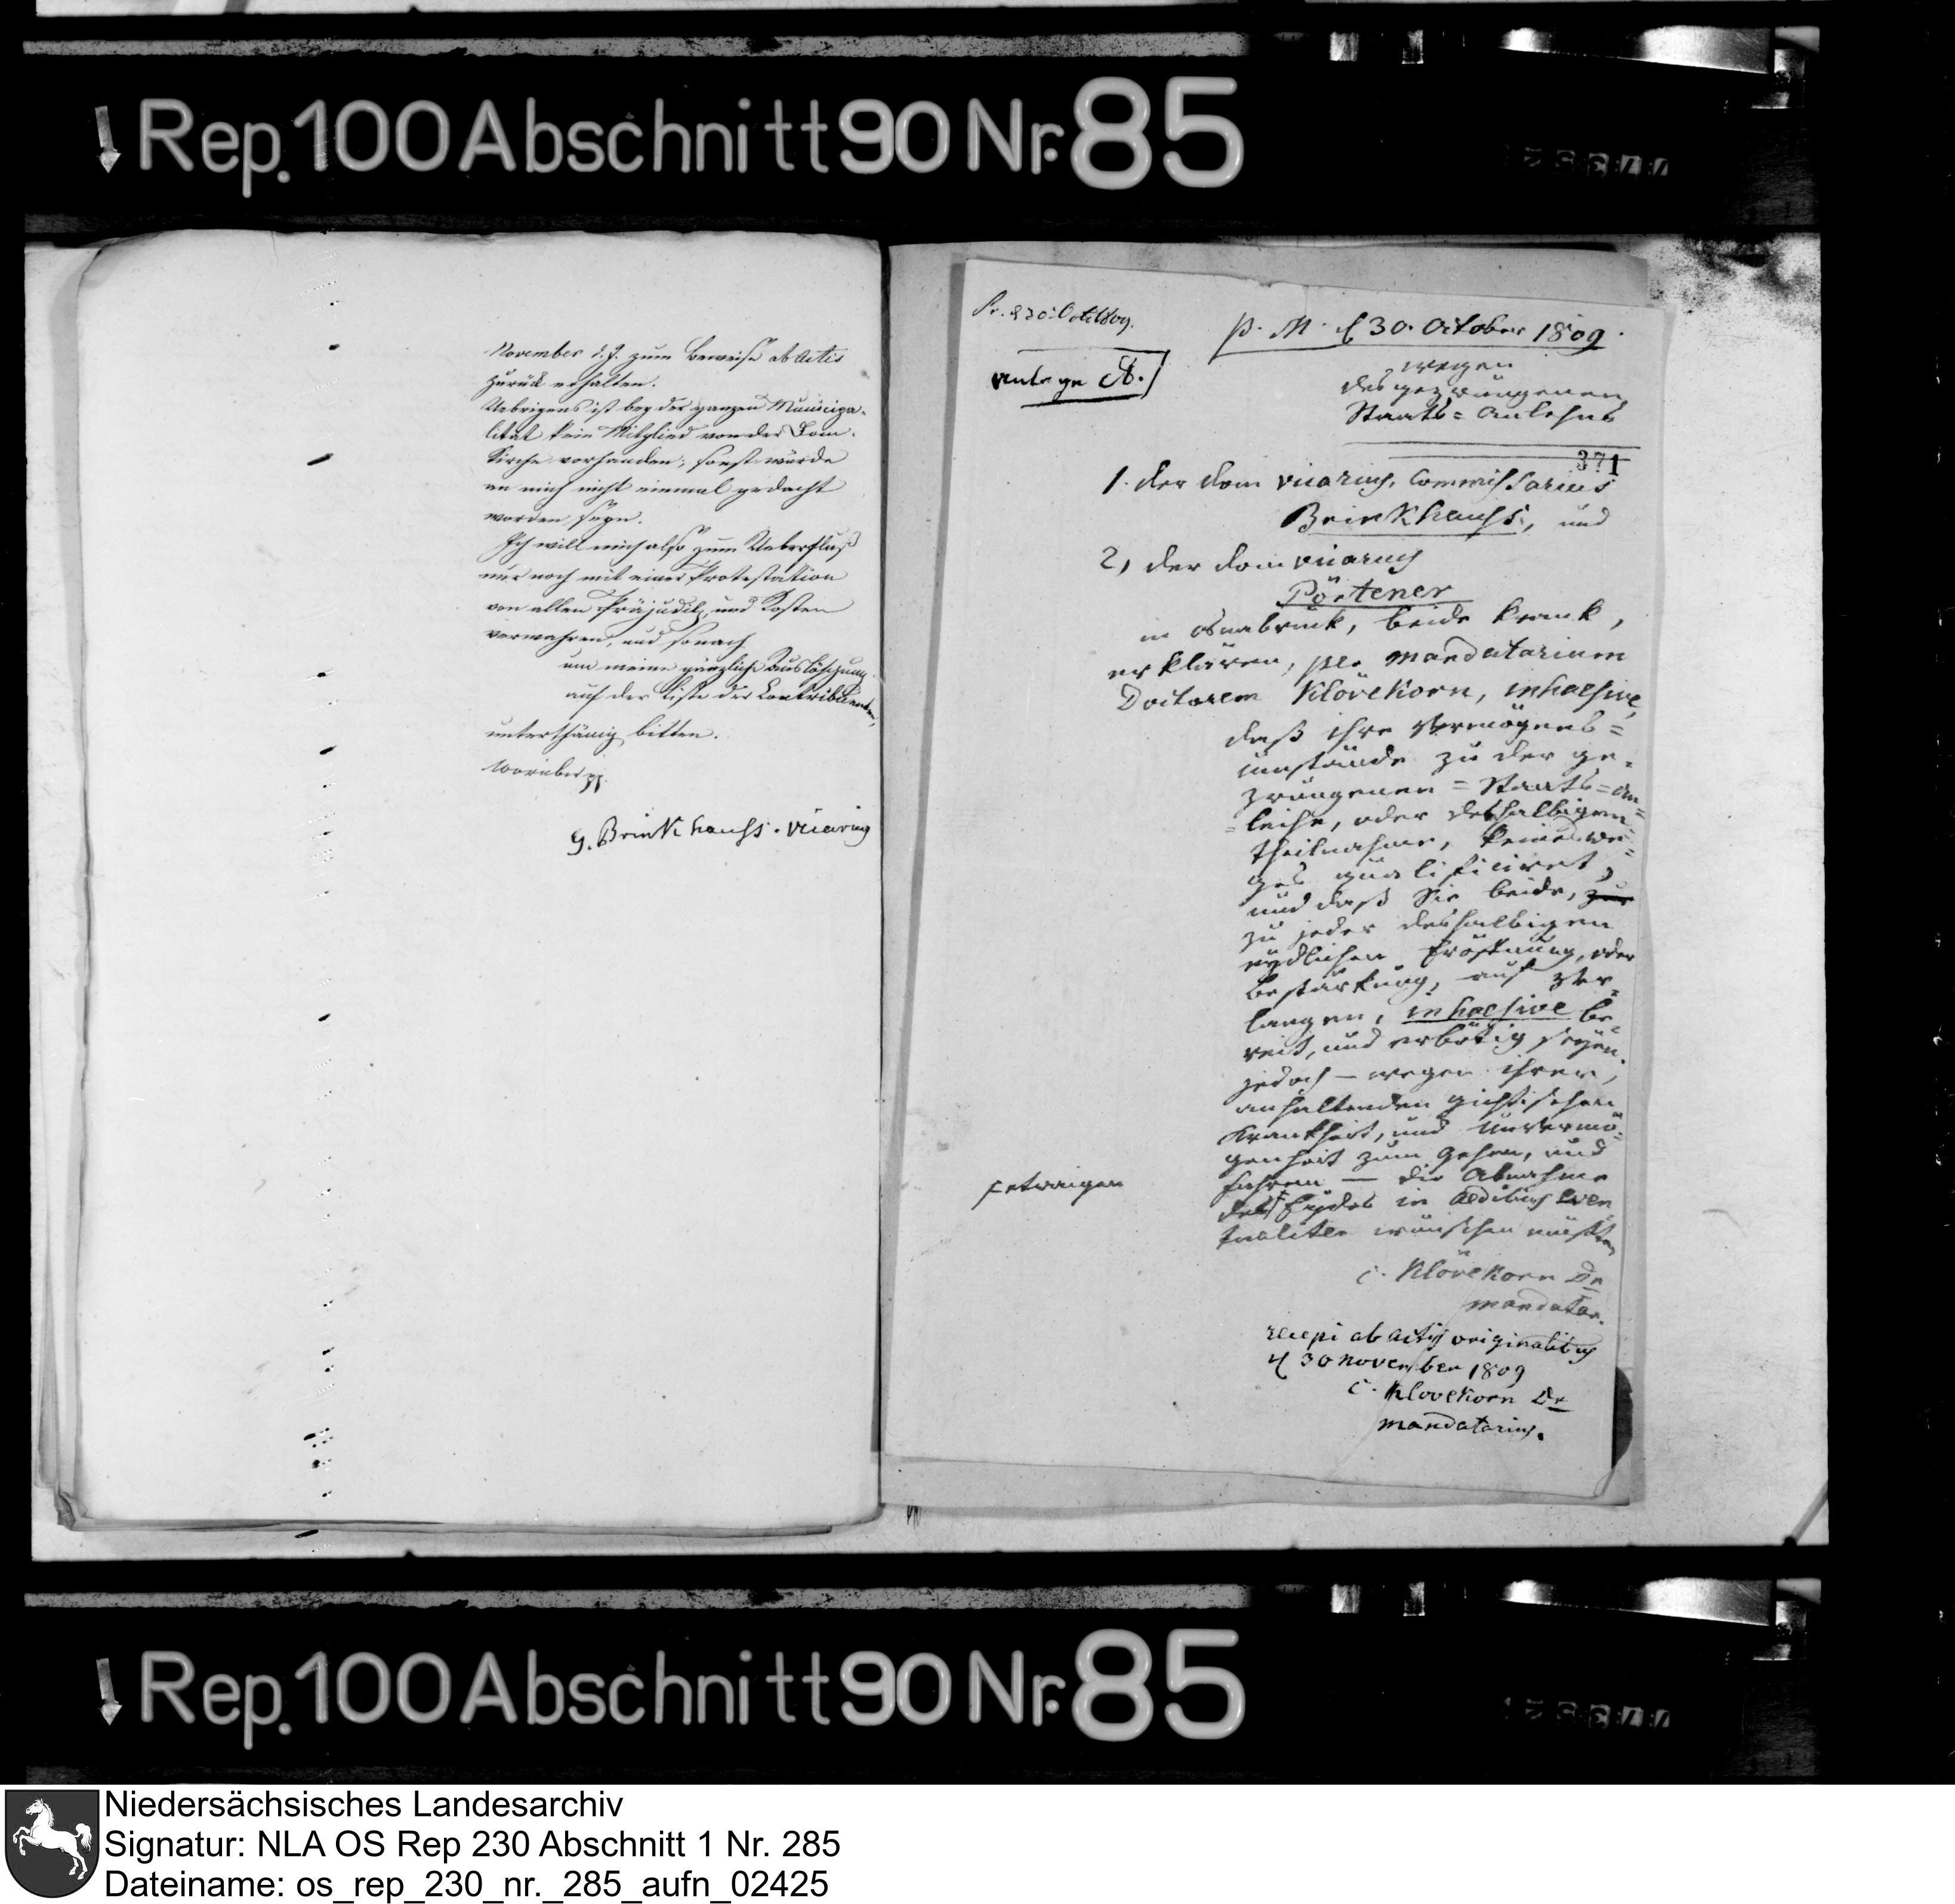 Rep. 100 Abschnitt 90 Nr. 85
November d. J. zum Beweise ab Actis
zurück erhalten.
Uebrigens ist bey der ganzen Municipa-
lität kein Mitglied von der Dom-
kirche vorhanden; sonst würde
an mich nicht einmal gedacht
worden seyn.
Ich will mich also zum Ueberfluß
nur noch mit einer Protestation
von allen Präjudiz, und Kosten
verwahren, und sonach
um meine gänzliche Auslöschung
auf der Liste der Contribuenten,
unterthänig bitten.
Worüber pp.
G. Brinkhauss. vicarius
Pr. d 30t Octb 1809.
Anlage A.
p. M. d 30. October 1809.
wegen
des gezwungenen
Staats=Anlehns
371
1. der dom vicarius, Commissarius
Brinkhauss, und
2, der dom vicarius
Pörtener
in Osnabrück, beide krank,
erklären, per mandatarium
Doctorem Klövekorn, inhaesive,
daß ihre Vermögens=
umstände zu der ge-
zwungenen=Staats=An=
=leihe, oder deshalbigen
Theilnahme, keineswe=
ges qualificiret,
und daß Sie beide, zur
zu jeder deshalbigen
eydlichen Eröffnung, oder
Bestärkung, auf Ver=
langen, inhaesive be-
reit, und erbötig seyen.
jedoch — wegen ihrer,
anhaltenden gichtischen
Krankheit, und Unvermö-
genheit zum Gehen, und
fahren — die Abnahme
des Eydes in aedibus even
tualiter wünschen müßten
etwaigen
C. Klövekorn Dr
mandatar.
recepi ab actis originalibus
d 30 November 1809
C. Klovekorn Dr
mandatarius.
Rep. 100 Abschnitt 90 Nr. 85
Niedersächsisches Landesarchiv
Signatur: NLA OS Rep 230 Abschnitt 1 Nr. 285
Dateiname: os_rep_230_nr._285_aufn_02425